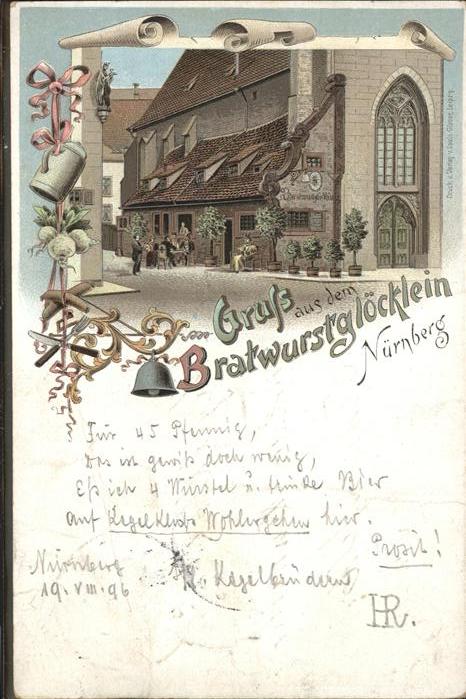 Gruß aus dem
Bratwurstglöcklein
Nürnberg
Für 45 Pfennig,
das ist gewiß doch wenig,
Eß ich 4 Würstel u. trinke Bier
auf Kegelklubs Wohlergehen hier.
Prosit!
Nürnberg
19. VIII. 96
Kegelbrüdern
HR.